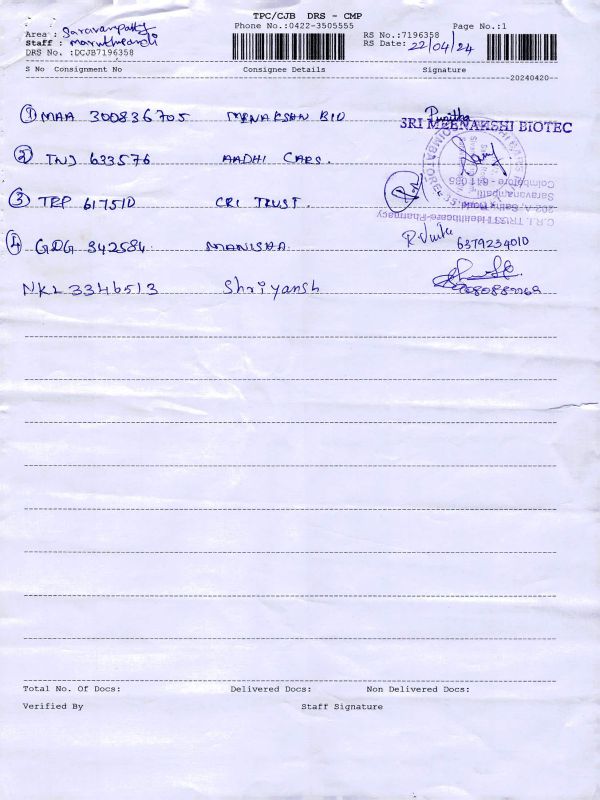 TPC/CJB DRS - CMP
Phone No.:0422-3505555
Page No.:1
Area : Saravanpatty
Staff : maruthpandi
DRS No. :DCJB7196358
RS No.:7196358
RS Date: 22/04/24
S No Consignment No Consignee Details Signature
20240420
1 MAA 300836705 MENAKSHI BIO Punitha
SRI MEENAKSHI BIOTEC
2 TNJ 633576 AADHI CARS.
3 TRP 617510 CRI TRUST.
C.R.I. TRUST Healthcare-Pharmacy
202-A, Sathy Road
Saravanampatti
Coimbatore - 641 035
4 GDG 342584 MANISHA 6379234010
NKL 3346513 Shriyansh
Total No. Of Docs: Delivered Docs: Non Delivered Docs:
Verified By Staff Signature